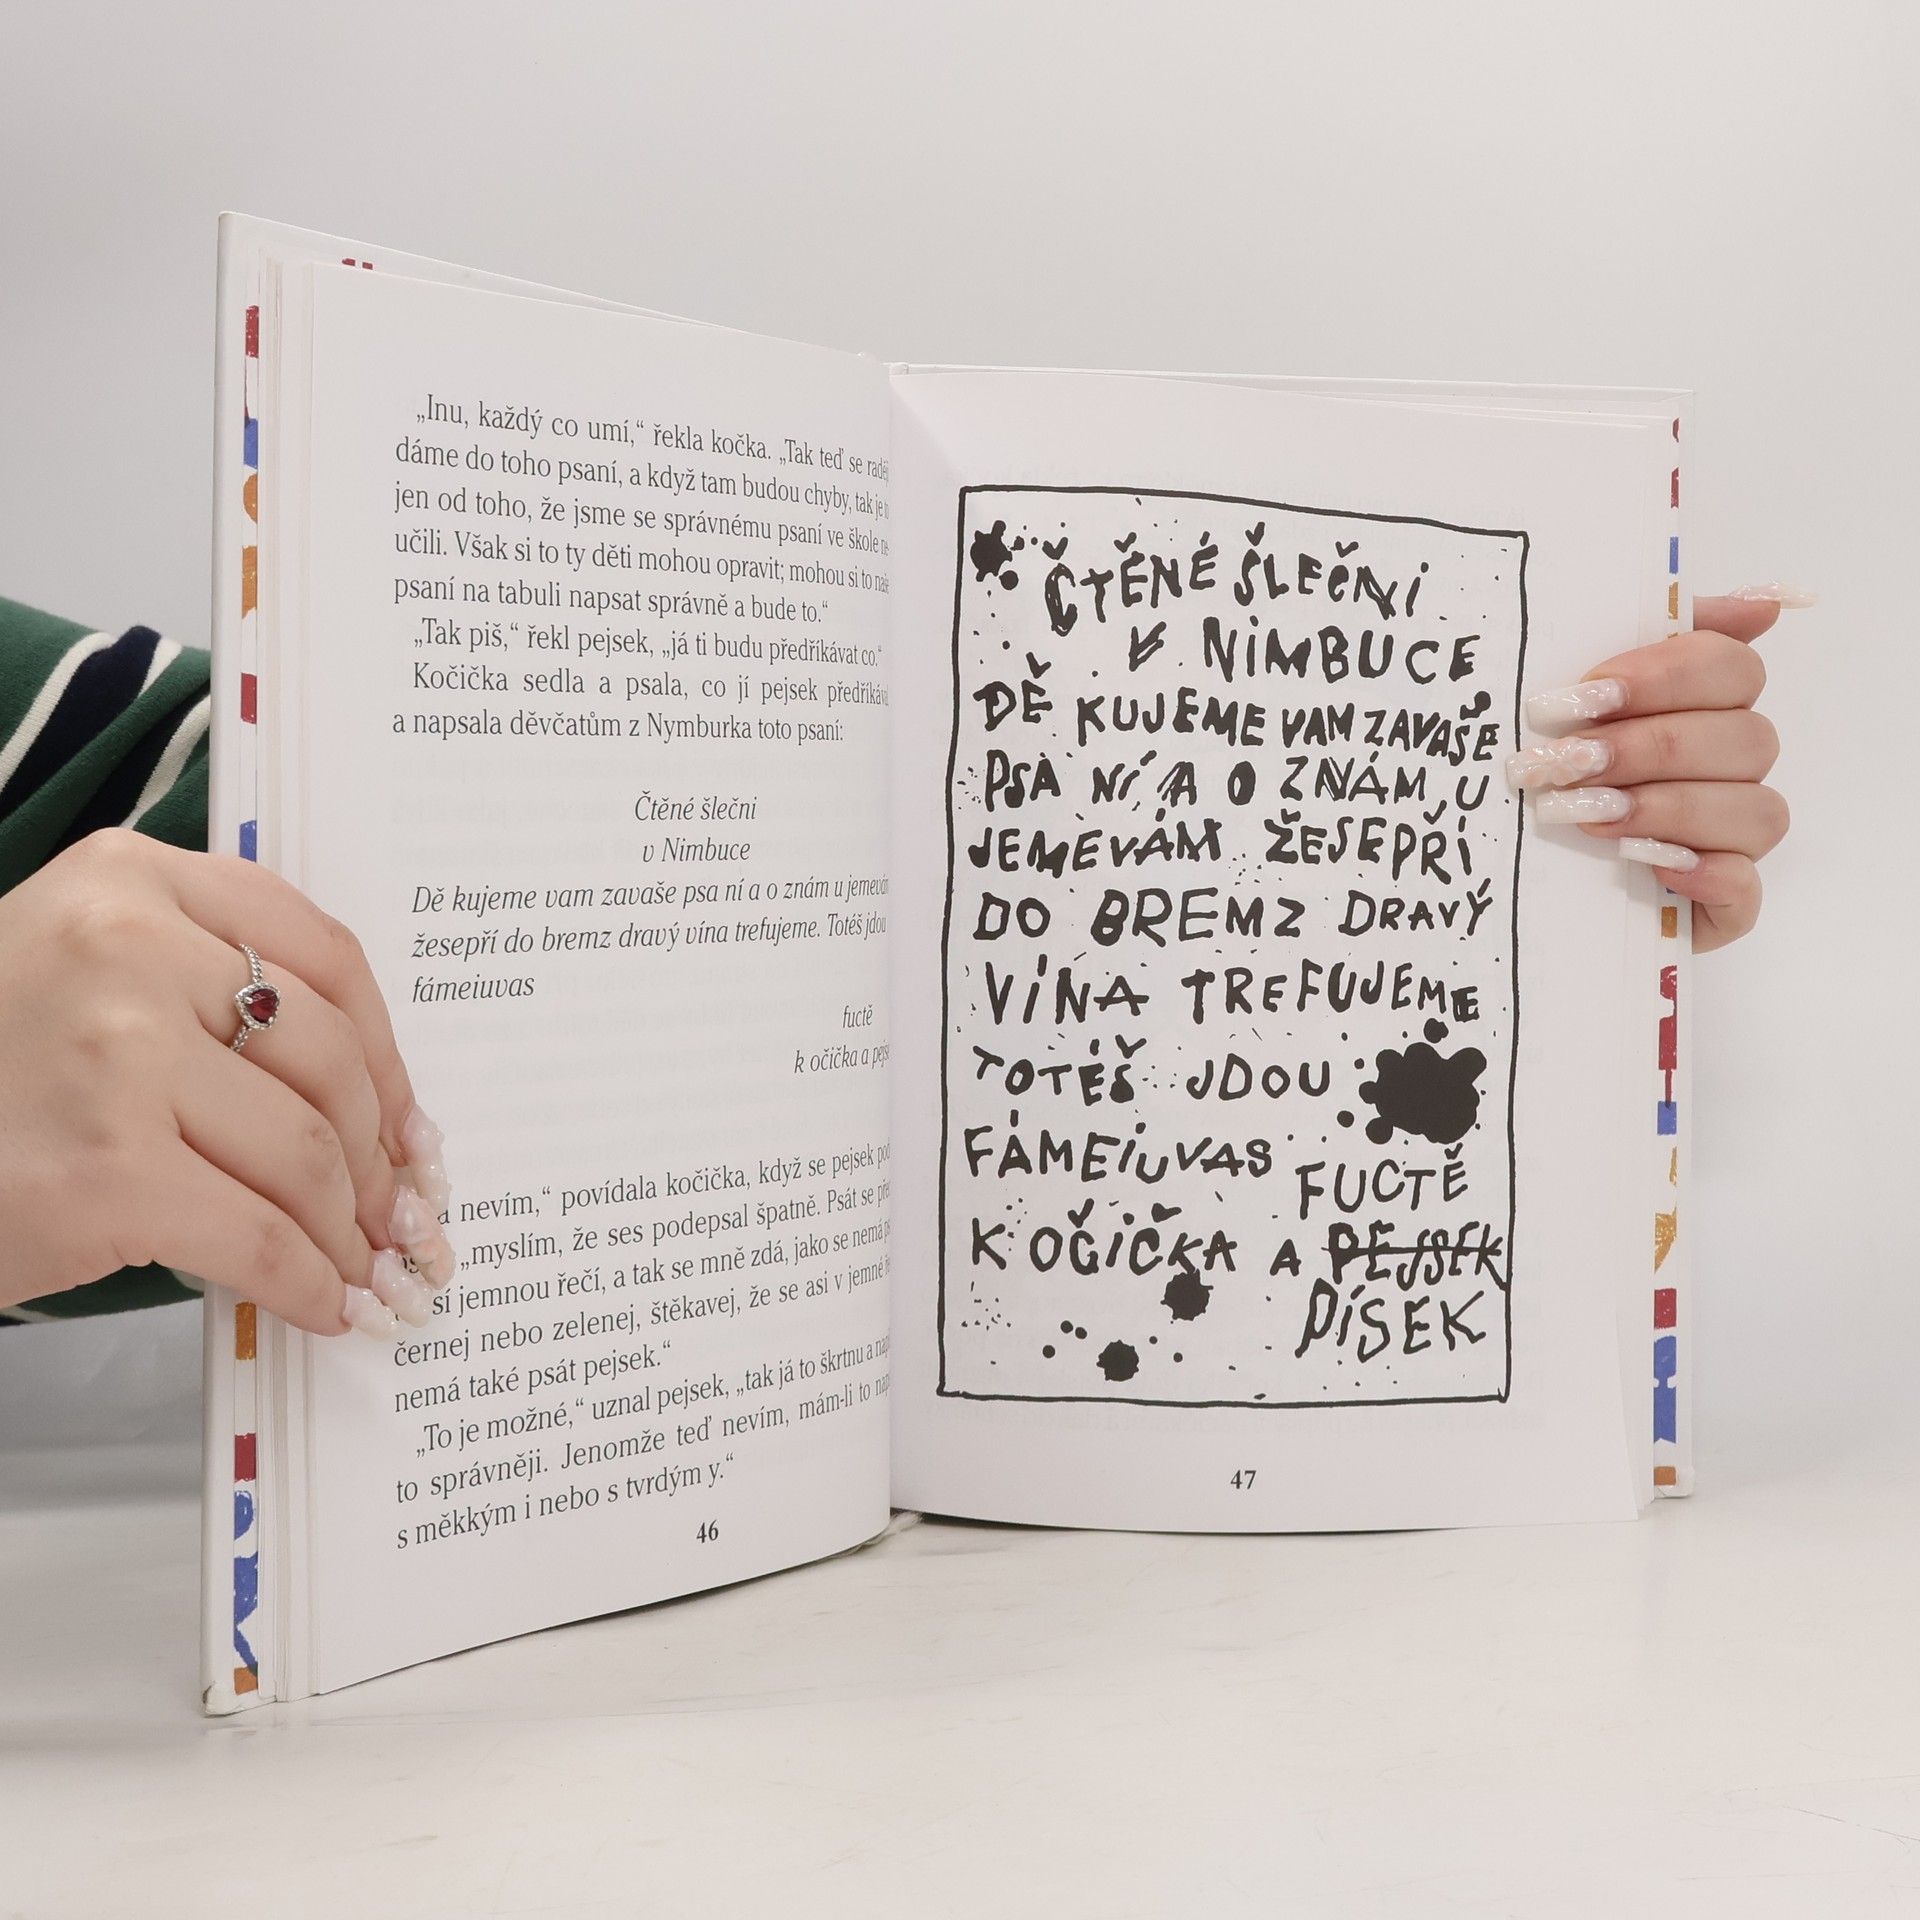 „Inu, každý co umí,“ řekla kočka. „Tak teď se
dáme do toho psaní, a když tam budou chyby, tak je
jen od toho, že jsme se správnému psaní ve škole
učili. Však si to ty děti mohou opravit; mohou si to
psaní na tabuli napsat správně a bude to.“
„Tak piš,“ řekl pejsek, „já ti budu předříkávat co.“
Kočička sedla a psala, co jí pejsek
a napsala děvčatům z Nymburka toto psaní:
Čtěné šlečni
v Nimbuce
Dě kujeme vam zavaše psa ní a o znám u
žesepří do bremz dravý vína trefujeme. Totéš jdou
fámeiuvas
fuctě
k očička a
nevím,“ povídala kočička, když se pejsek
„myslím, že ses podepsal špatně. Psát se
sí jemnou řečí, a tak se mně zdá, jako se nemá
černej nebo zelenej, štěkavej, že se asi v jemné
nemá také psát pejsek.“
„To je možné,“ uznal pejsek, „tak já to škrtnu a
to správněji. Jenomže teď nevím, mám-li to
s měkkým i nebo s tvrdým y.“
46
ČTĚNÉ ŠLEČNI
V NIMBUCE
DĚ KUJEME VAM ZAVAŠE
PSA NÍ A O ZNÁM U
JEMEVÁM ŽESEPŘÍ
DO BREMZ DRAVÝ
VÍNA TREFUJEME
TOTÉŠ JDOU
FÁMEIUVAS
FUCTĚ
K OČIČKA A PEJSEK
PÍSEK
47